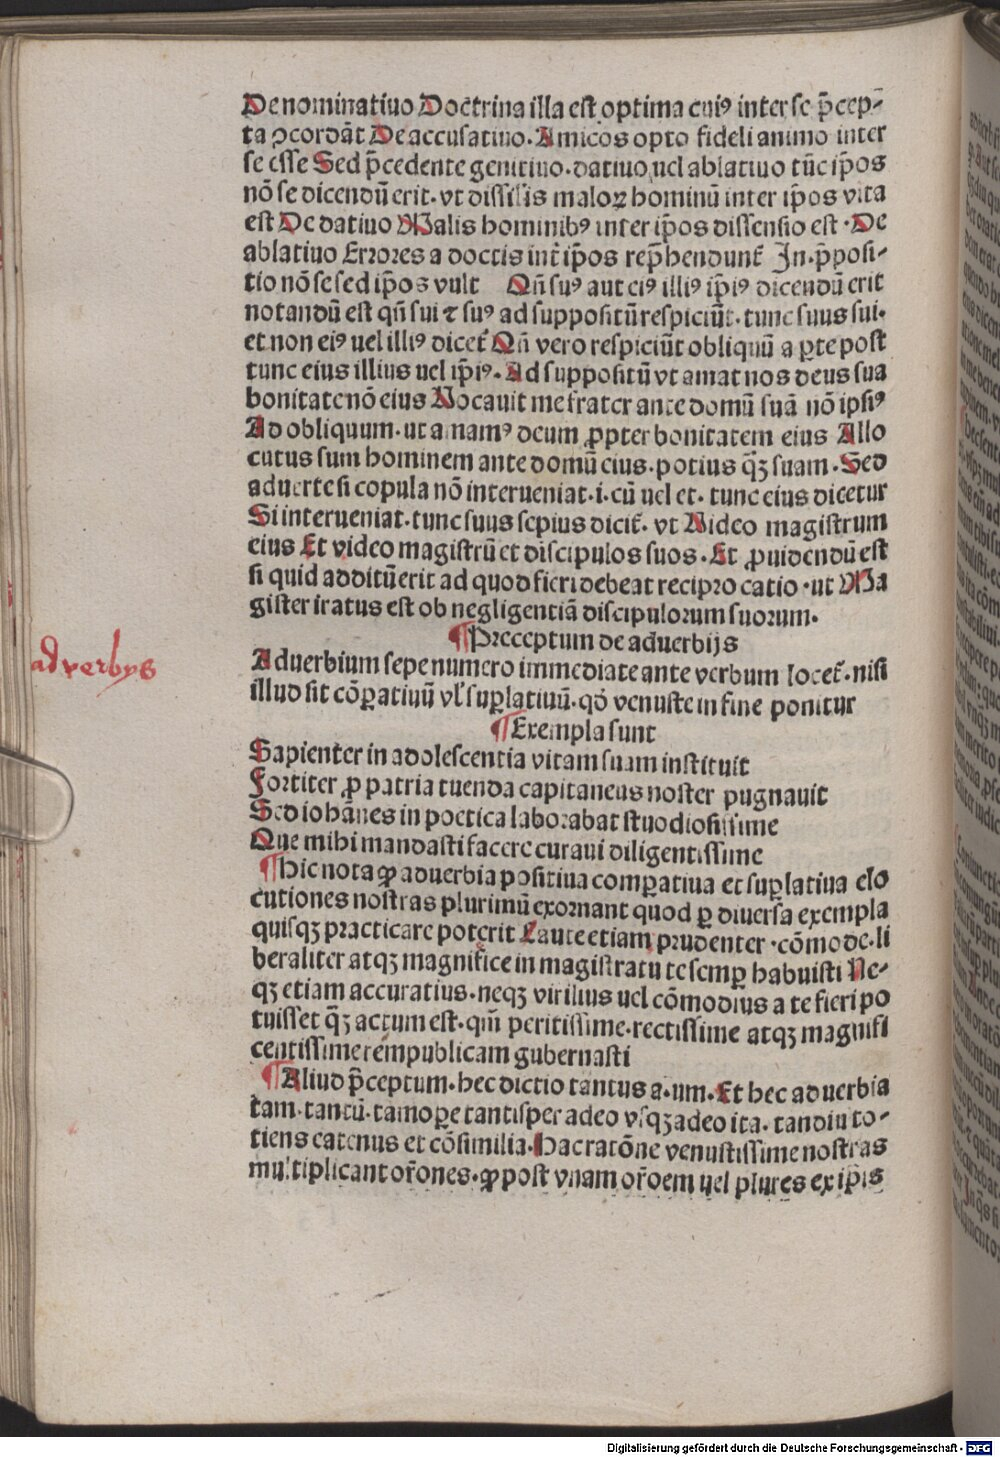 Denominatiuo Doctrina illa est optima cuiꝰ inter se p̄cep-
ta ꝯcordāt De accusatiuo. Amicos opto fideli animo inter
se esse Sed p̄cedente genitiuo. datiuo uel ablatiuo tūc ip̄os
nō se dicendū erit. vt dissilis maloꝝ hominū inter ip̄os vita
est De datiuo Malis hominibꝰ inter ip̄os dissensio est. De
ablatiuo Errores a doctis int̄ ip̄os rep̄hendunt̄ In. p̄posi-
tio nō se sed ip̄os vult Qn̄ suꝰ aut eiꝰ illiꝰ ip̄iꝰ dicendū erit
notandū est qn̄ sui ⁊ suꝰ ad suppositū respiciūt. tunc suus sui.
et non eiꝰ uel illiꝰ dicet̄ Qn̄ vero respiciūt obliquū a ꝑte post
tunc eius illius uel ip̄iꝰ. Ad suppositū vt amat nos deus sua
bonitate nō eius Vocauit me frater ante domū suā nō ipsiꝰ
Ad obliquum. ut amamꝰ deum ꝓpter bonitatem eius Allo
cutus sum hominem ante domū eius. potius q̄ꝫ suam. Sed
aduerte si copula nō interueniat. i. cū uel et. tunc eius dicetur
Si interueniat. tunc suus sepius dicit̄. vt Video magistrum
eius Et video magistrū et discipulos suos. Et ꝓuidendū est
si quid additū erit ad quod fieri debeat reciprocatio. ut Ma
gister iratus est ob negligentiā discipulorum suorum.
¶Preceptum de aduerbijs
adverbys
Aduerbium sepenumero immediate ante verbum locet̄. nisi
illud sit cōꝑatiuū vl̄ suꝑlatiuū. qd̄ venuste in fine ponitur
¶Exempla sunt
Sapienter in adolescentia vitam suam instituit
Fortiter ꝓ patria tuenda capitaneus noster pugnauit
Sed iohānes in poetica laborabat studiosissime
Que mihi mandasti facere curaui diligentissime
¶Hic nota ꝙ aduerbia positiua comꝑatiua et suꝑlatiua elo
cutiones nostras plurimū exornant quod ꝑ diuersa exempla
quisqꝫ practicare poterit Caute etiam prudenter. cōmode. li
beraliter atqꝫ magnifice in magistratu te semꝑ habuisti Ne-
qꝫ etiam accuratius. neqꝫ virilius uel cōmodius a te fieri po
tuisset q̄ꝫ actum est. qm̄ peritissime. rectissime atqꝫ magnifi
centissime rempublicam gubernasti
¶Aliud p̄ceptum. hec dictio tantus a. um. Et hec aduerbia
tam. tantū. tamoꝑe tantisper adeo vsqꝫadeo ita. tandiu to-
tiens eatenus et cōsimilia. Hac ratōne venustissime nostras
multiplicant or̄ones. ꝙ post vnam or̄oem uel plures ex ip̄is
Digitalisierung gefördert durch die Deutsche Forschungsgemeinschaft - DFG